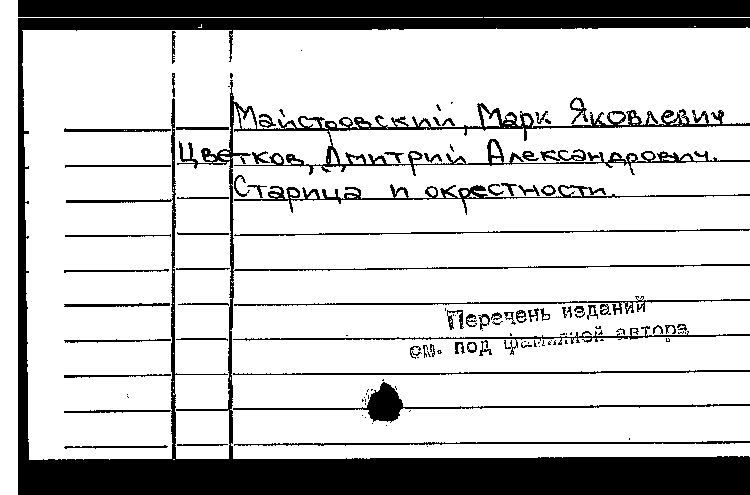 Майстровский, Марк Яковлевич
Цветков, Дмитрий Александрович.
Старица и окрестности.
Перечень изданий
см. под фамилией автора